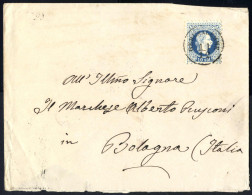 All' Illmo Signore
Il Marchese Alberto
in
Bologna (Italia